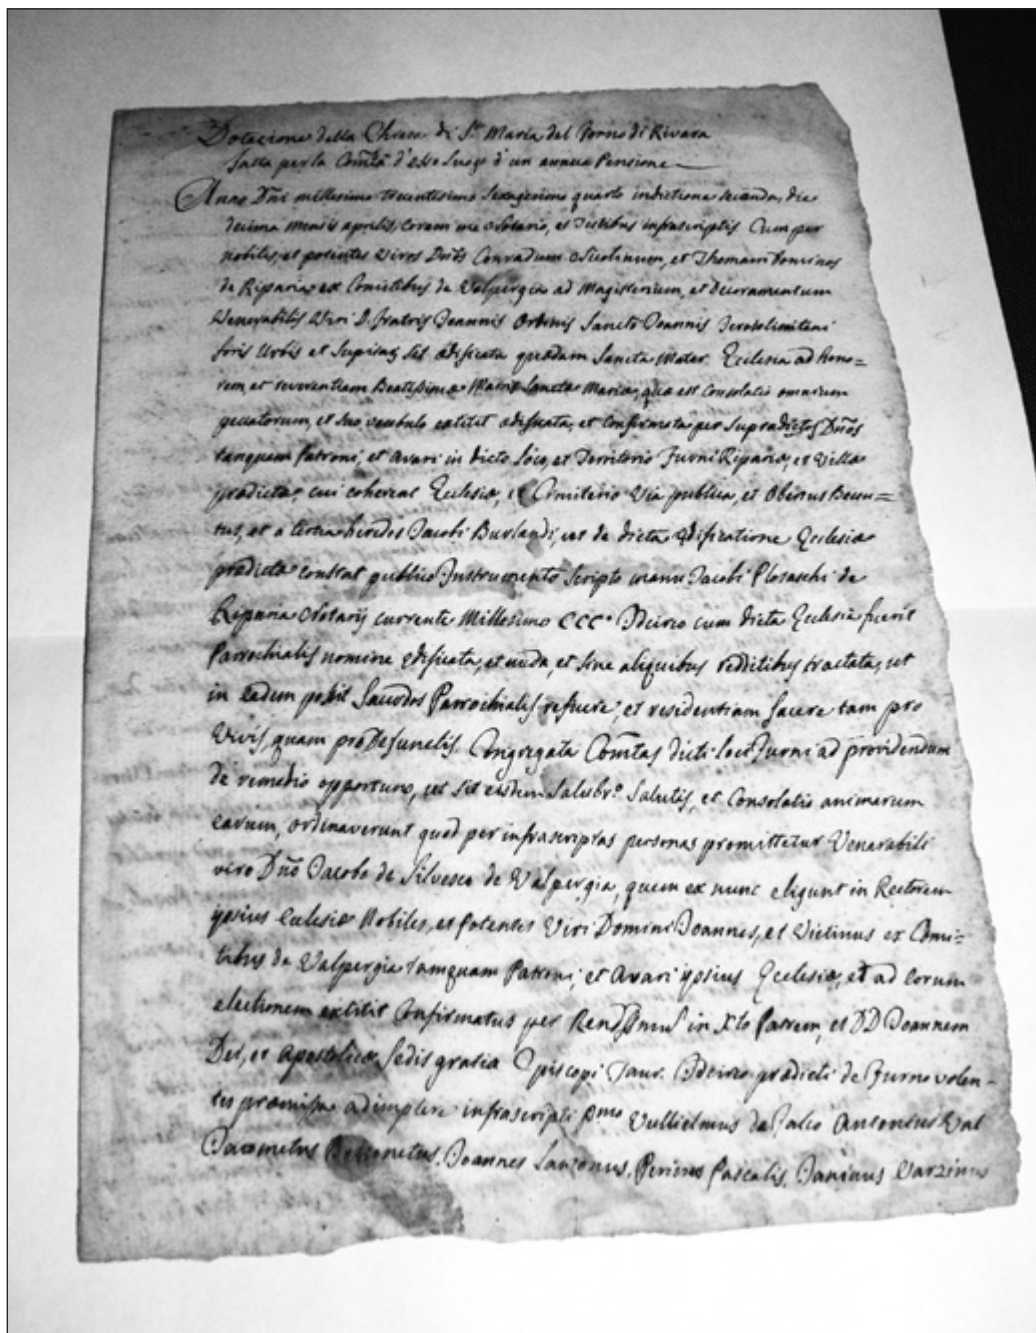 Dotazione della Chiesa di S.ta Maria del Forno di Rivara
fatta per la Com.tà d'esso Luogo d'un annua Pensione
Anno Dñi millesimo trecentesimo sexagesimo quarto indictione secunda, die
decima mensis aprilis, coram me Notario, et Testibus infrascriptis Cum per
nobiles, et potentes Viros Conradum et Thomam Dominos
de Riparia ex Comitibus de Valpergia ad Magisterium, et decoramentum
Venerabilis Viri D. fratris Joannis Ordinis Sancti Joannis Jerosolimitani
foris Urbis et sit ædificata quædam Sancta Mater Ecclesia ad hono=
rem, et reverentiam Beatissimæ Matris Sanctæ Mariæ, quæ est Consolatio omnium
peccatorum, et suo vocabulo extitit ædificata, et Confirmata per Supradictos Dños
tanquam Patroni, et Avari in dicto Loco, et Territorio Furni Ripariæ, et Villa
prædicta, cui coherent Ecclesiæ, et Cimiterio Via publica, et
et a tertia heredes Jacobi Burlandi, ut de dicta ædificatione Ecclesiæ
prædictæ constat publico Instrumento scripto manu Jacobi Plosaschi de
Riparia Notarij currente Millesimo CCC° Idcirco cum dicta Ecclesia fuerit
Parrochialis nomine ædificata, et nuda, et sine aliquibus redditibus tractata, ut
in eadem possit Sacerdos Parrochialis et residentiam facere tam pro
Vivis, quam pro Defunctis. Congregata Com.tas dicti Loci Furni ad providendum
de remedio opportuno, ut sit eisdem Salutis, et Consolatio animarum
earum, ordinaverunt quod per infrascriptas personas promittetur Venerabili
viro Dño Jacobo de Silvesco de Valpergia, quem ex nunc eligunt in Rectorem
ipsius Ecclesiæ Nobiles, et Potentes Viri Domini Joannes, et Vietinus ex Comi=
tibus de Valpergia tamquam Patroni, et Avari ipsius Ecclesiæ, et ad eorum
electionem extitit Confirmatus per in Xto Patrem, et DD Joannem
Dei, et Apostolicæ Sedis gratia Episcopi Taur. Idcirco prædicti de Furno volen=
tes promissa adimplere infrascripti p.mo Vullielmus de Falco Antonius
Jacometus Joannes Lanzonus, Perinus Pascalis, Janinus Varzinus